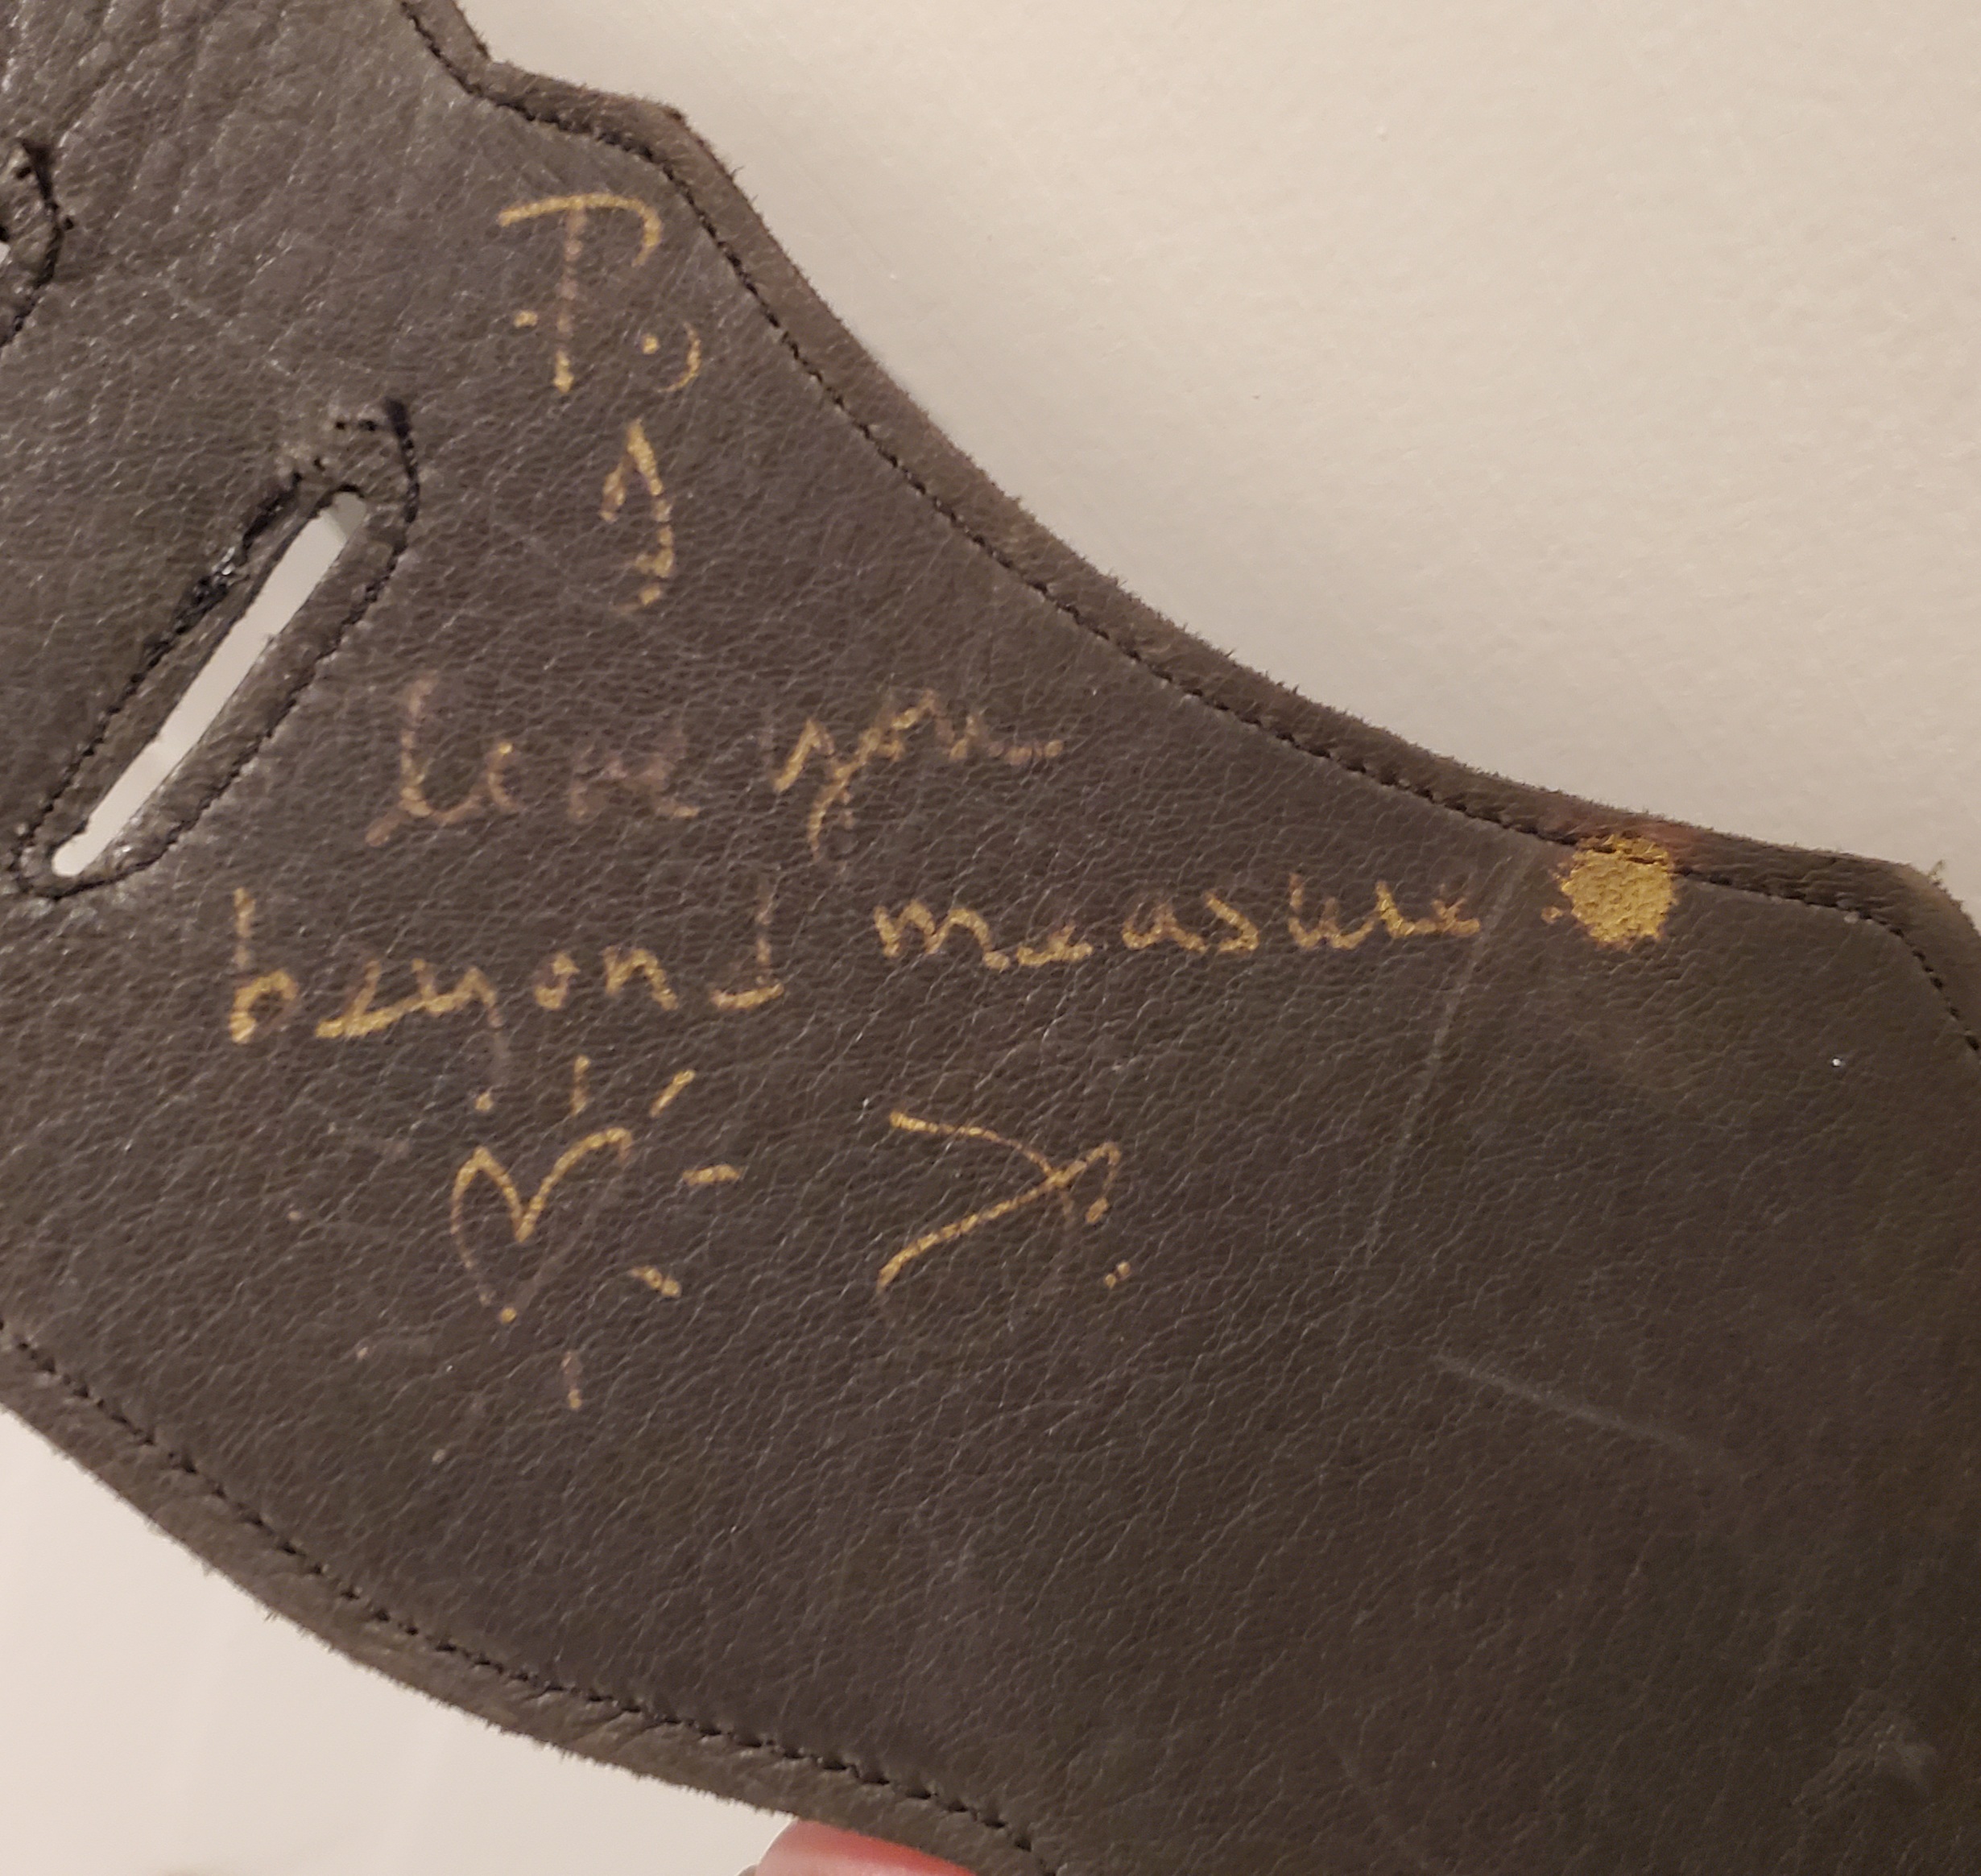 P.,
I
love you
beyond measure.